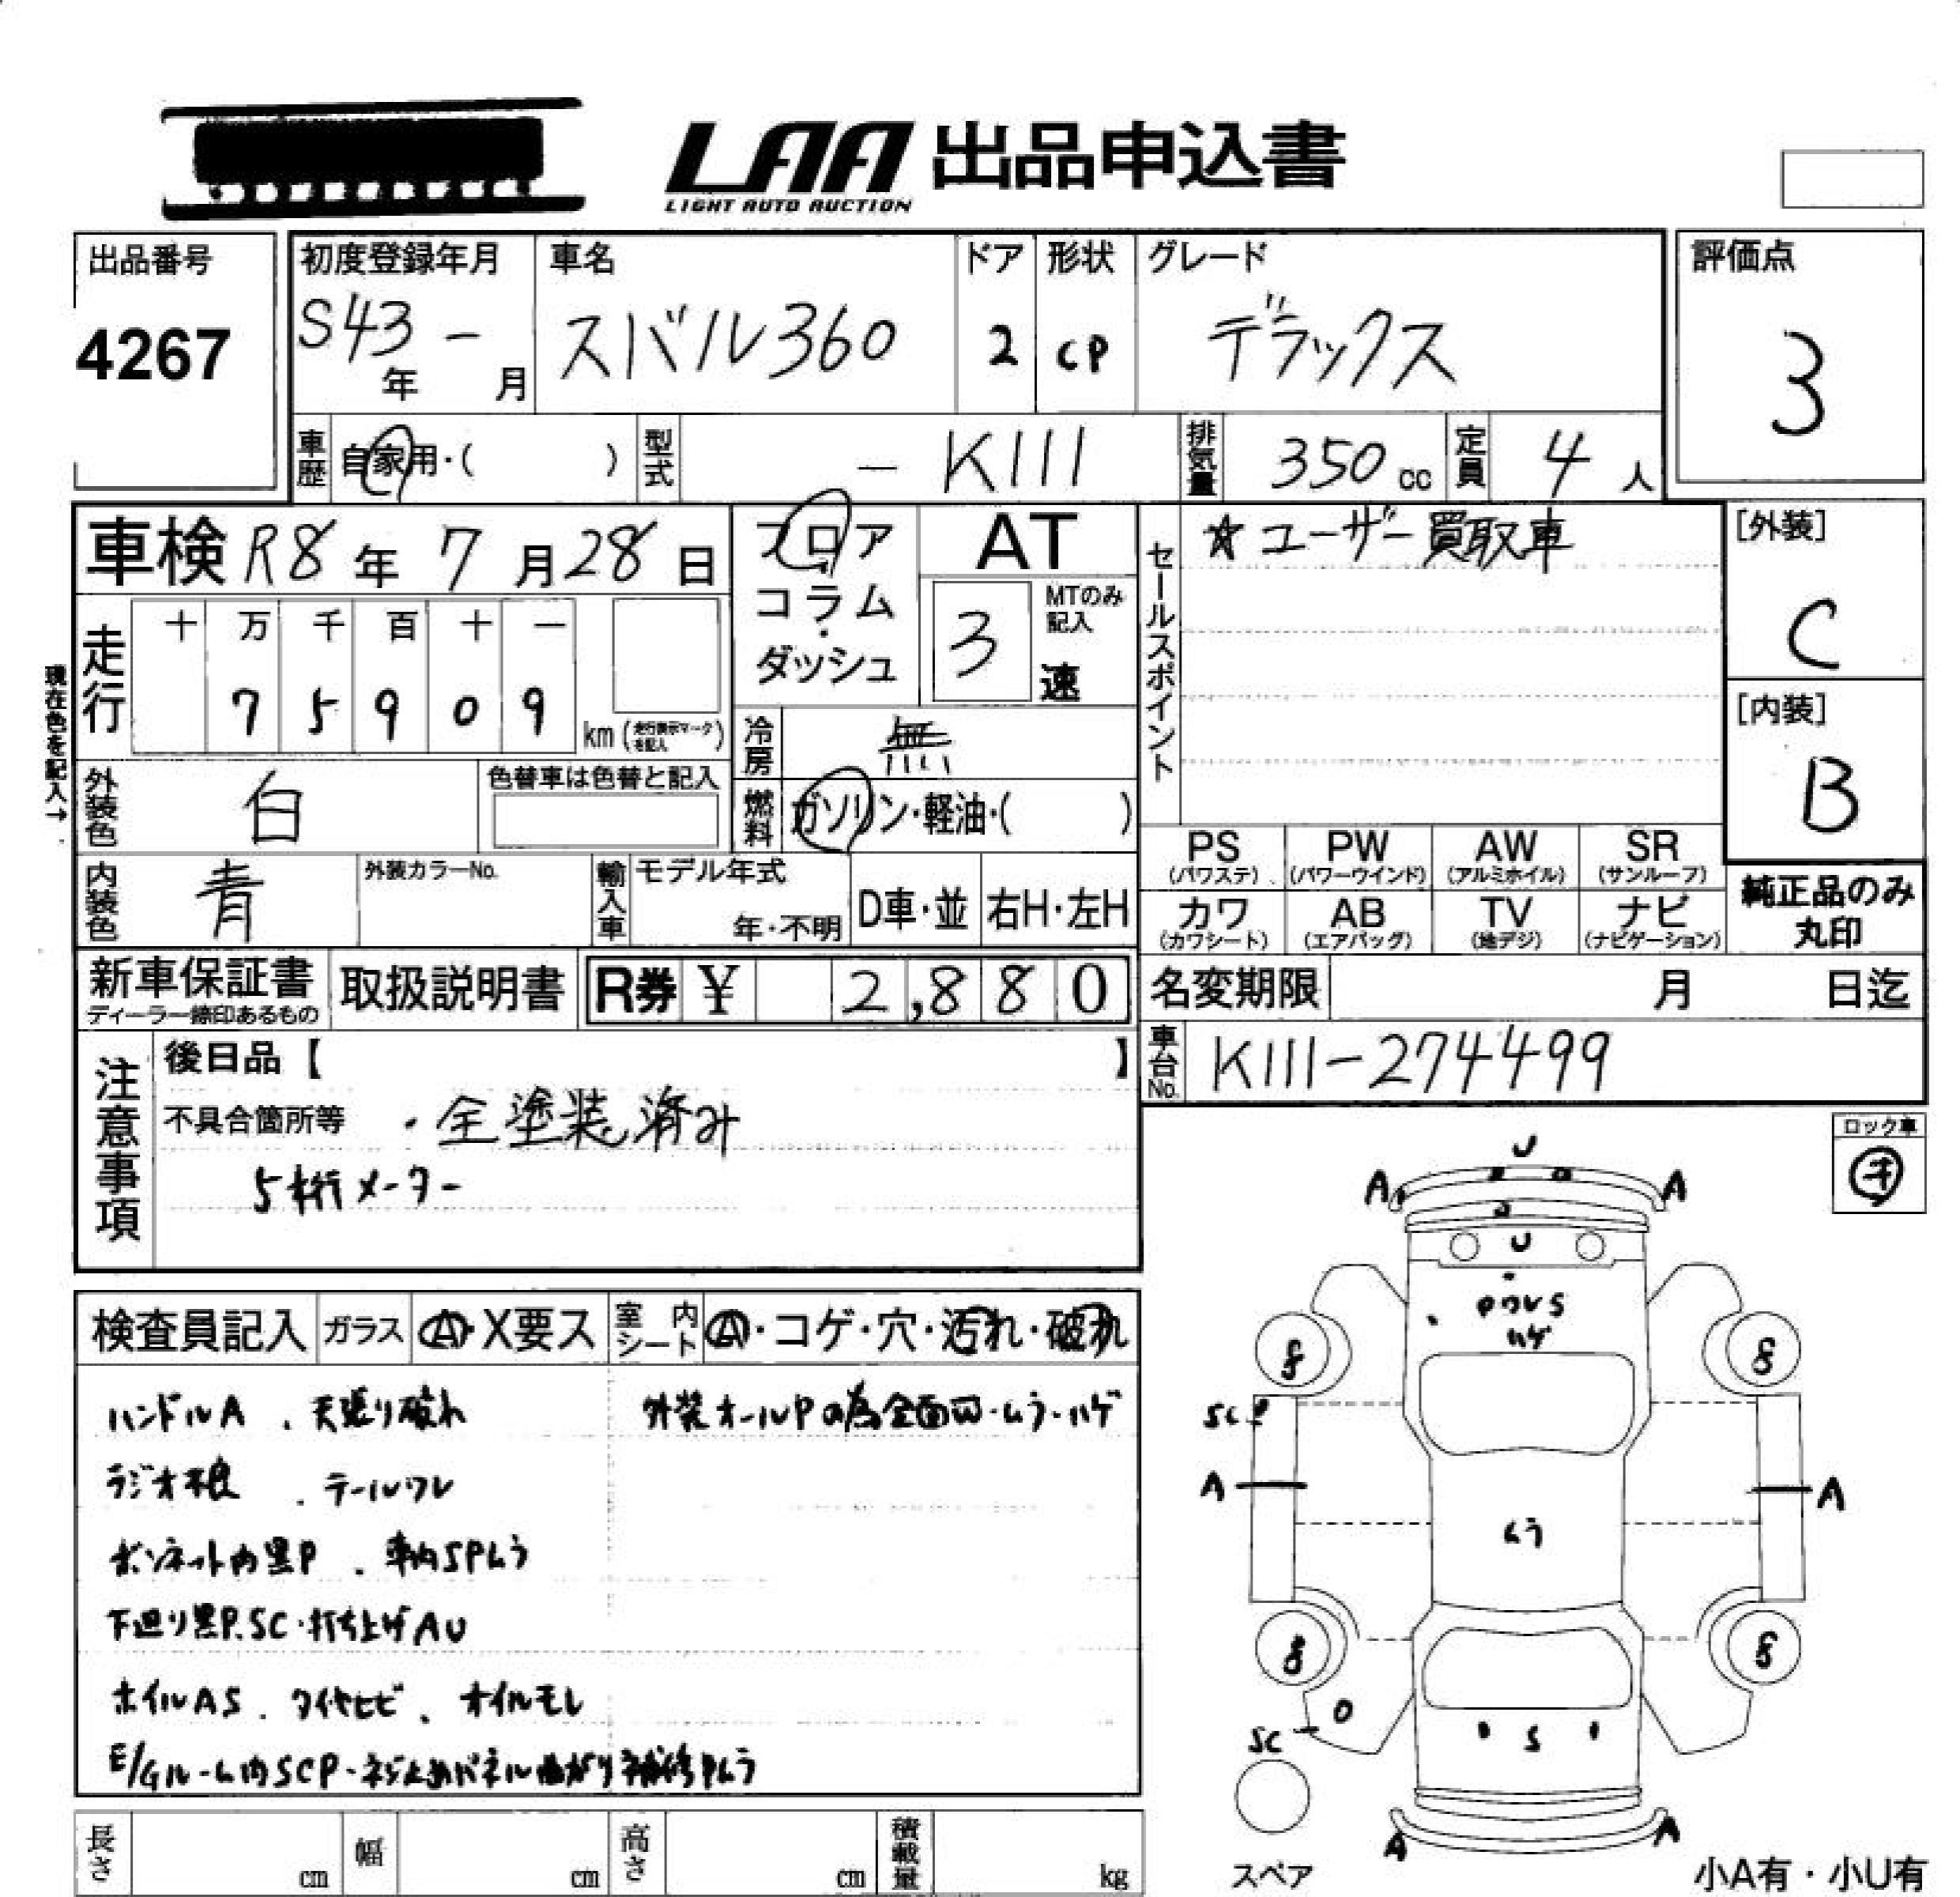 LAA 出品申込書
LIGHT AUTO AUCTION
出品番号
4267
初度登録年月
S43 年 - 月
車名
スバル360
ドア
2
形状
CP
グレード
デラックス
評価点
3
車歴 自家用・( )
型式 - K111
排気量 350 cc
定員 4 人
車検 R8年 7月28日
フロア
コラム
・
ダッシュ
AT
MTのみ記入
3 速
セールスポイント
☆ユーザー買取車
[外装]
C
[内装]
B
現在色を記入→
走行
十 万 千 百 十 一
7 5 9 0 9
km (走行表示マークを記入)
冷房 無
燃料 ガソリン・軽油・( )
外装色 白
色替車は色替と記入
内装色 青
外装カラーNo.
輸入車
モデル年式
年・不明
D車・並
右H・左H
PS (パワステ)
PW (パワーウインド)
AW (アルミホイル)
SR (サンルーフ)
カワ (カワシート)
AB (エアバッグ)
TV (地デジ)
ナビ (ナビゲーション)
純正品のみ
丸印
新車保証書
ディーラー捺印あるもの
取扱説明書
R券 ¥ 2,880
名変期限 月 日迄
車台No. K111-274499
注意事項
後日品【 】
不具合箇所等 ・全塗装済み
5桁メーター
ロック車
検査員記入
ガラス
A・X要ス
室内シート
A・コゲ・穴・汚れ・破れ
ハンドルA 、天張り破れ
外装オールPの為全面凹・ムラ・ハゲ
ラジオ不良 、テールワレ
ボンネット内黒P 、車内SPムラ
下廻り黒P.SC・打ち上げAU
ホイルAS 、タイヤヒビ 、オイルモレ
E/Gルーム内SCP・ネジ止めパネル曲がり補修Pムラ
U
A
A
U
Pワレ S
ハゲ
8
8
SC
A
A
ムラ
8
8
SC
S
A
A
スペア
小A有・小U有
長さ cm
幅 cm
高さ cm
積載量 kg